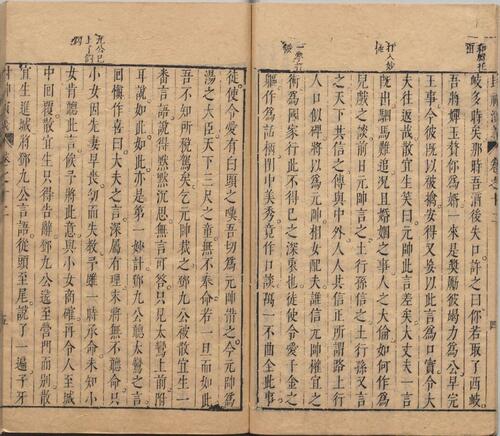 岐多時矣那時吾酒後失口許之曰你若取了西岐
吾將嬋玉贅你爲婿一來是獎勵彼竭力爲公早完
王事今彼旣以被擒安得又妄以此言爲口實令大
夫往返哉散宜生笑曰元帥此言差矣大丈夫一言
旣出駟馬難追況且婚姻之事人之大倫如何作爲
兒戲之談前日元帥言之土行孫信之土行孫又言
之天下共信之傳與中外人人共信正所謂路上行
人口似碑將以爲元帥相女配夫誰信元帥權宜之
術爲國家行此不得已之深衷也徒使令愛千金之
軀作爲話柄閨中美秀竟作口談萬一不曲全此事
九公已
上了鈎
徒使令愛有白頭之嘆吾切爲元帥惜之今元帥爲
湯之大臣天下三尺之童無不奉命若一旦而如此
吾不知所稅駕矣乞元帥裁之鄧九公被散宜生一
番言語說得默默沉思無言可答只見太鸞上前附
耳說如此如此亦是第一妙計鄧九公聽太鸞之言
回嗔作喜曰大夫之言深屬有理末將無不聽命只
小女因先妻早喪幼而失教予雖一時承命未知小
女肯聽此言俟予將此意與小女商確再令人至城
中回覆散宜生只得告辭鄧九公送至營門而別散
宜生進城將鄧九公言語從頭至尾說了一遍子牙